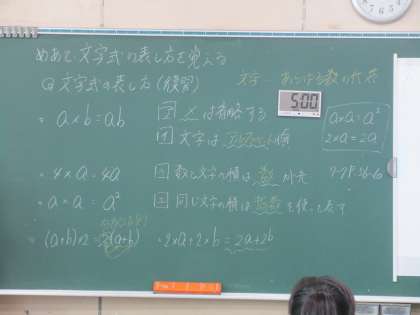 めあて 文字式の表し方を覚える
Q 文字式の表し方(練習)
文字… あらゆる数の代表
・a×b=ab
① ×は省略する
② 文字はアルファベット順
5:00
a×a=a²
2×a=2a
・4×a=4a
③ 数と文字の積は数が先
・a×a=a²
④ 同じ文字の積は指数を使って表す
・(a+b)×2=2(a+b)
・2×a+2×b=2a+2b